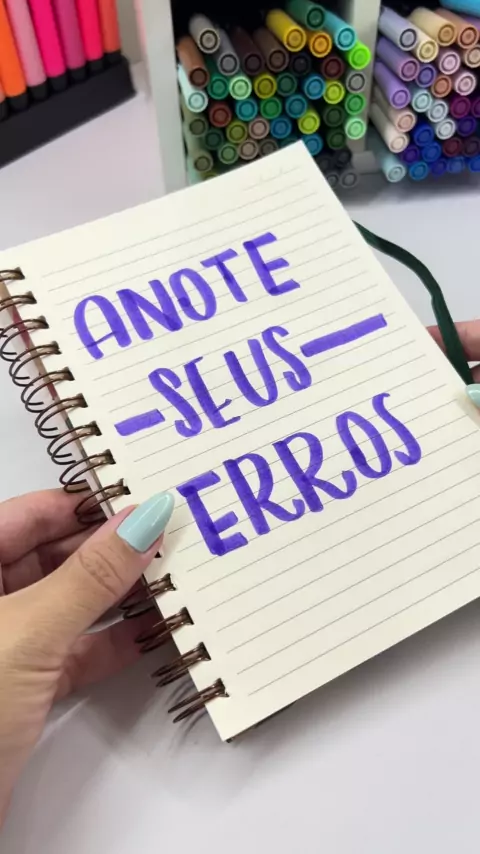 ANOTE
SEUS
ERROS